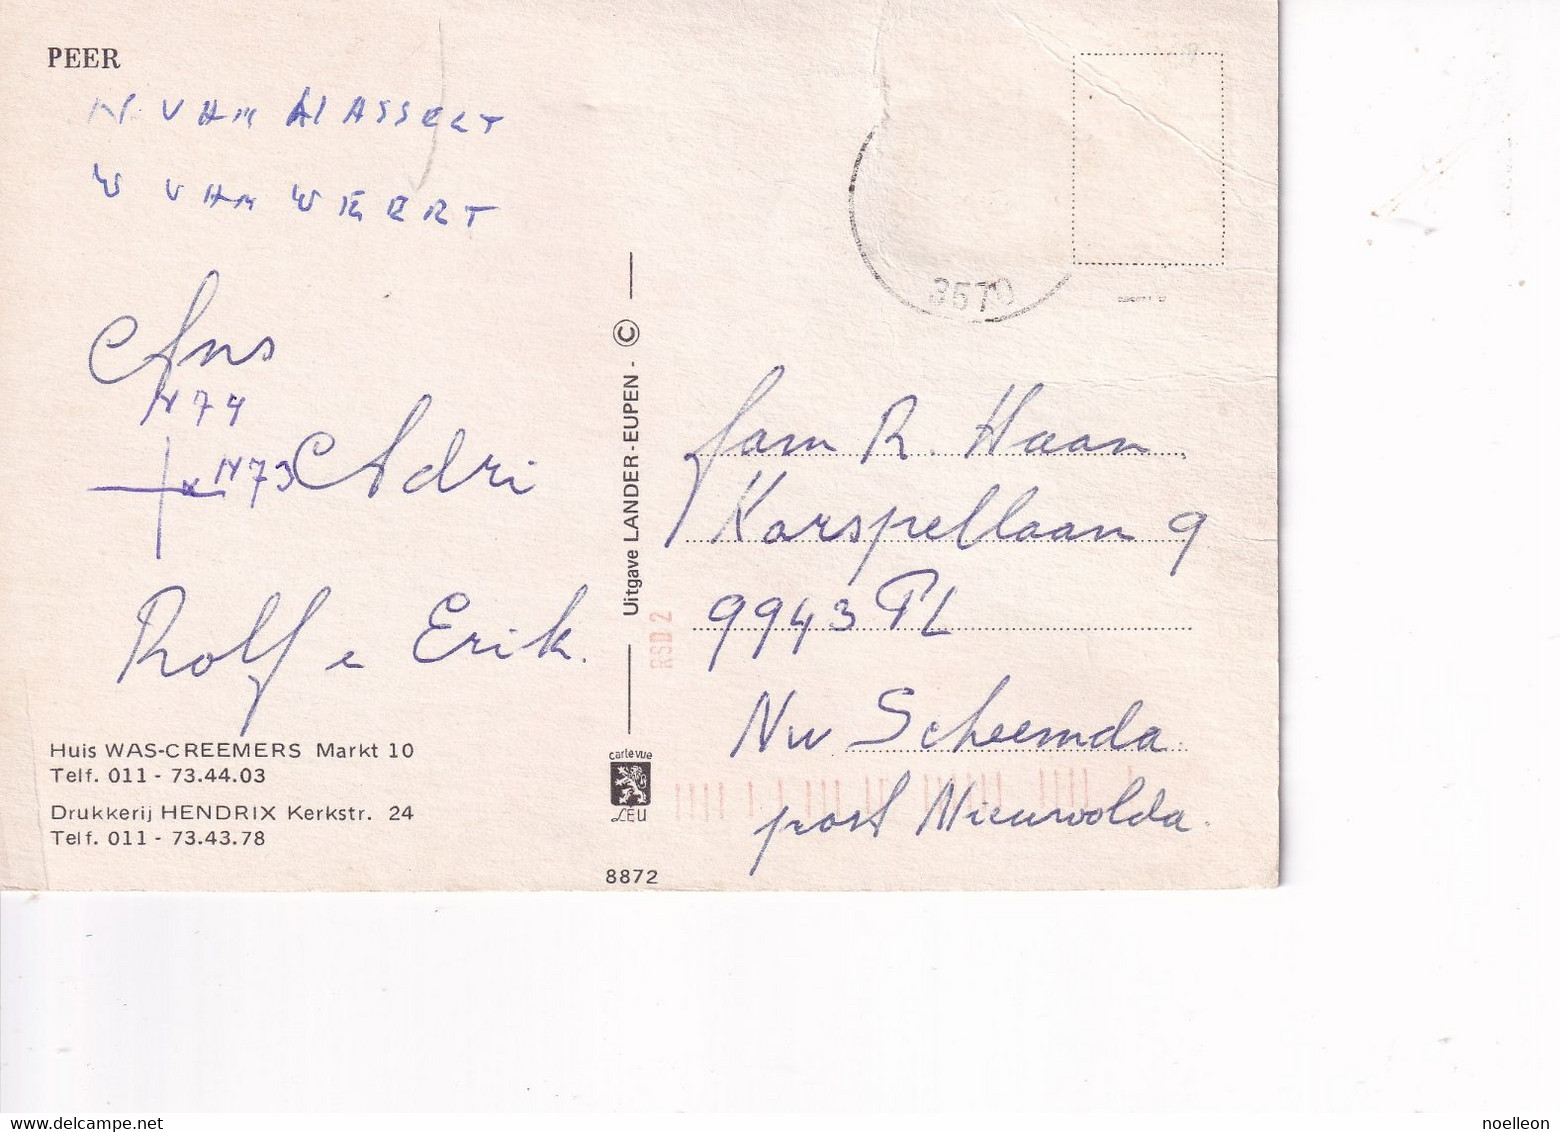 PEER
N. VAN HASSELT
W VAN WEERT
Ans
N74
N73
Adri
Rolf e Erik.
Huis WAS-CREEMERS Markt 10
Telf. 011 - 73.44.03
Drukkerij HENDRIX Kerkstr. 24
Telf. 011 - 73.43.78
Uitgave LANDER-EUPEN - ©
carte-vue
LEU
8872
RSD 2
3570
fam R. Haan
Karspellaan 9
9943 TL
Nw Scheemda
post Nieuwolda.
noelleon